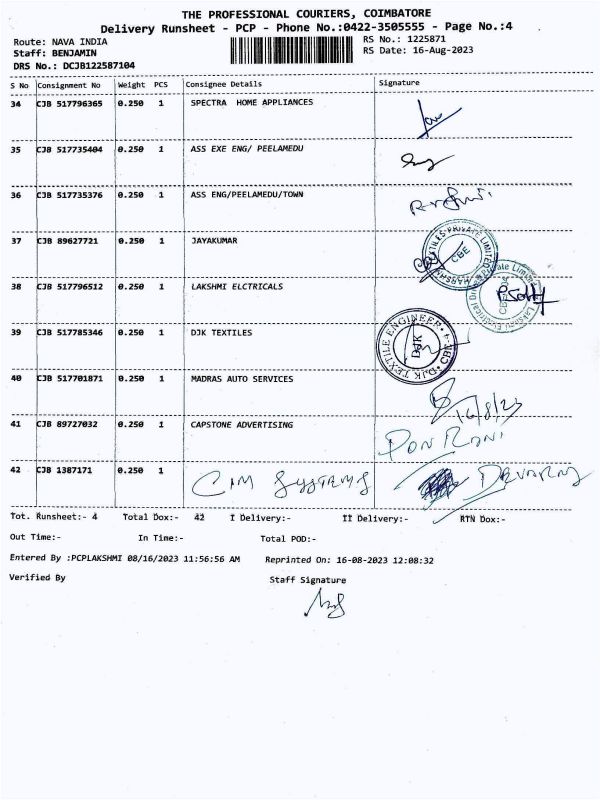 THE PROFESSIONAL COURIERS, COIMBATORE
Delivery Runsheet - PCP - Phone No.:0422-3505555 - Page No.:4
Route: NAVA INDIA RS No.: 1225871
Staff: BENJAMIN RS Date: 16-Aug-2023
DRS No.: DCJB122587104
S No Consignment No Weight PCS Consignee Details Signature
34 CJB 517796365 0.250 1 SPECTRA HOME APPLIANCES
35 CJB 517735404 0.250 1 ASS EXE ENG/ PEELAMEDU
36 CJB 517735376 0.250 1 ASS ENG/PEELAMEDU/TOWN
37 CJB 89627721 0.250 1 JAYAKUMAR
PRIVATE LIMITED
CBE
38 CJB 517796512 0.250 1 LAKSHMI ELCTRICALS
Private Limited
39 CJB 517785346 0.250 1 DJK TEXTILES
DJK TEXTILE ENGINEER
DJK
40 CJB 517701871 0.250 1 MADRAS AUTO SERVICES
16/8/23
41 CJB 89727032 0.250 1 CAPSTONE ADVERTISING
PON RANI
42 CJB 1387171 0.250 1 CIM SYSTEMS DEVARAJ
Tot. Runsheet:- 4 Total Dox:- 42 I Delivery:- II Delivery:- RTN Dox:-
Out Time:- In Time:- Total POD:-
Entered By :PCPLAKSHMI 08/16/2023 11:56:56 AM Reprinted On: 16-08-2023 12:08:32
Verified By Staff Signature